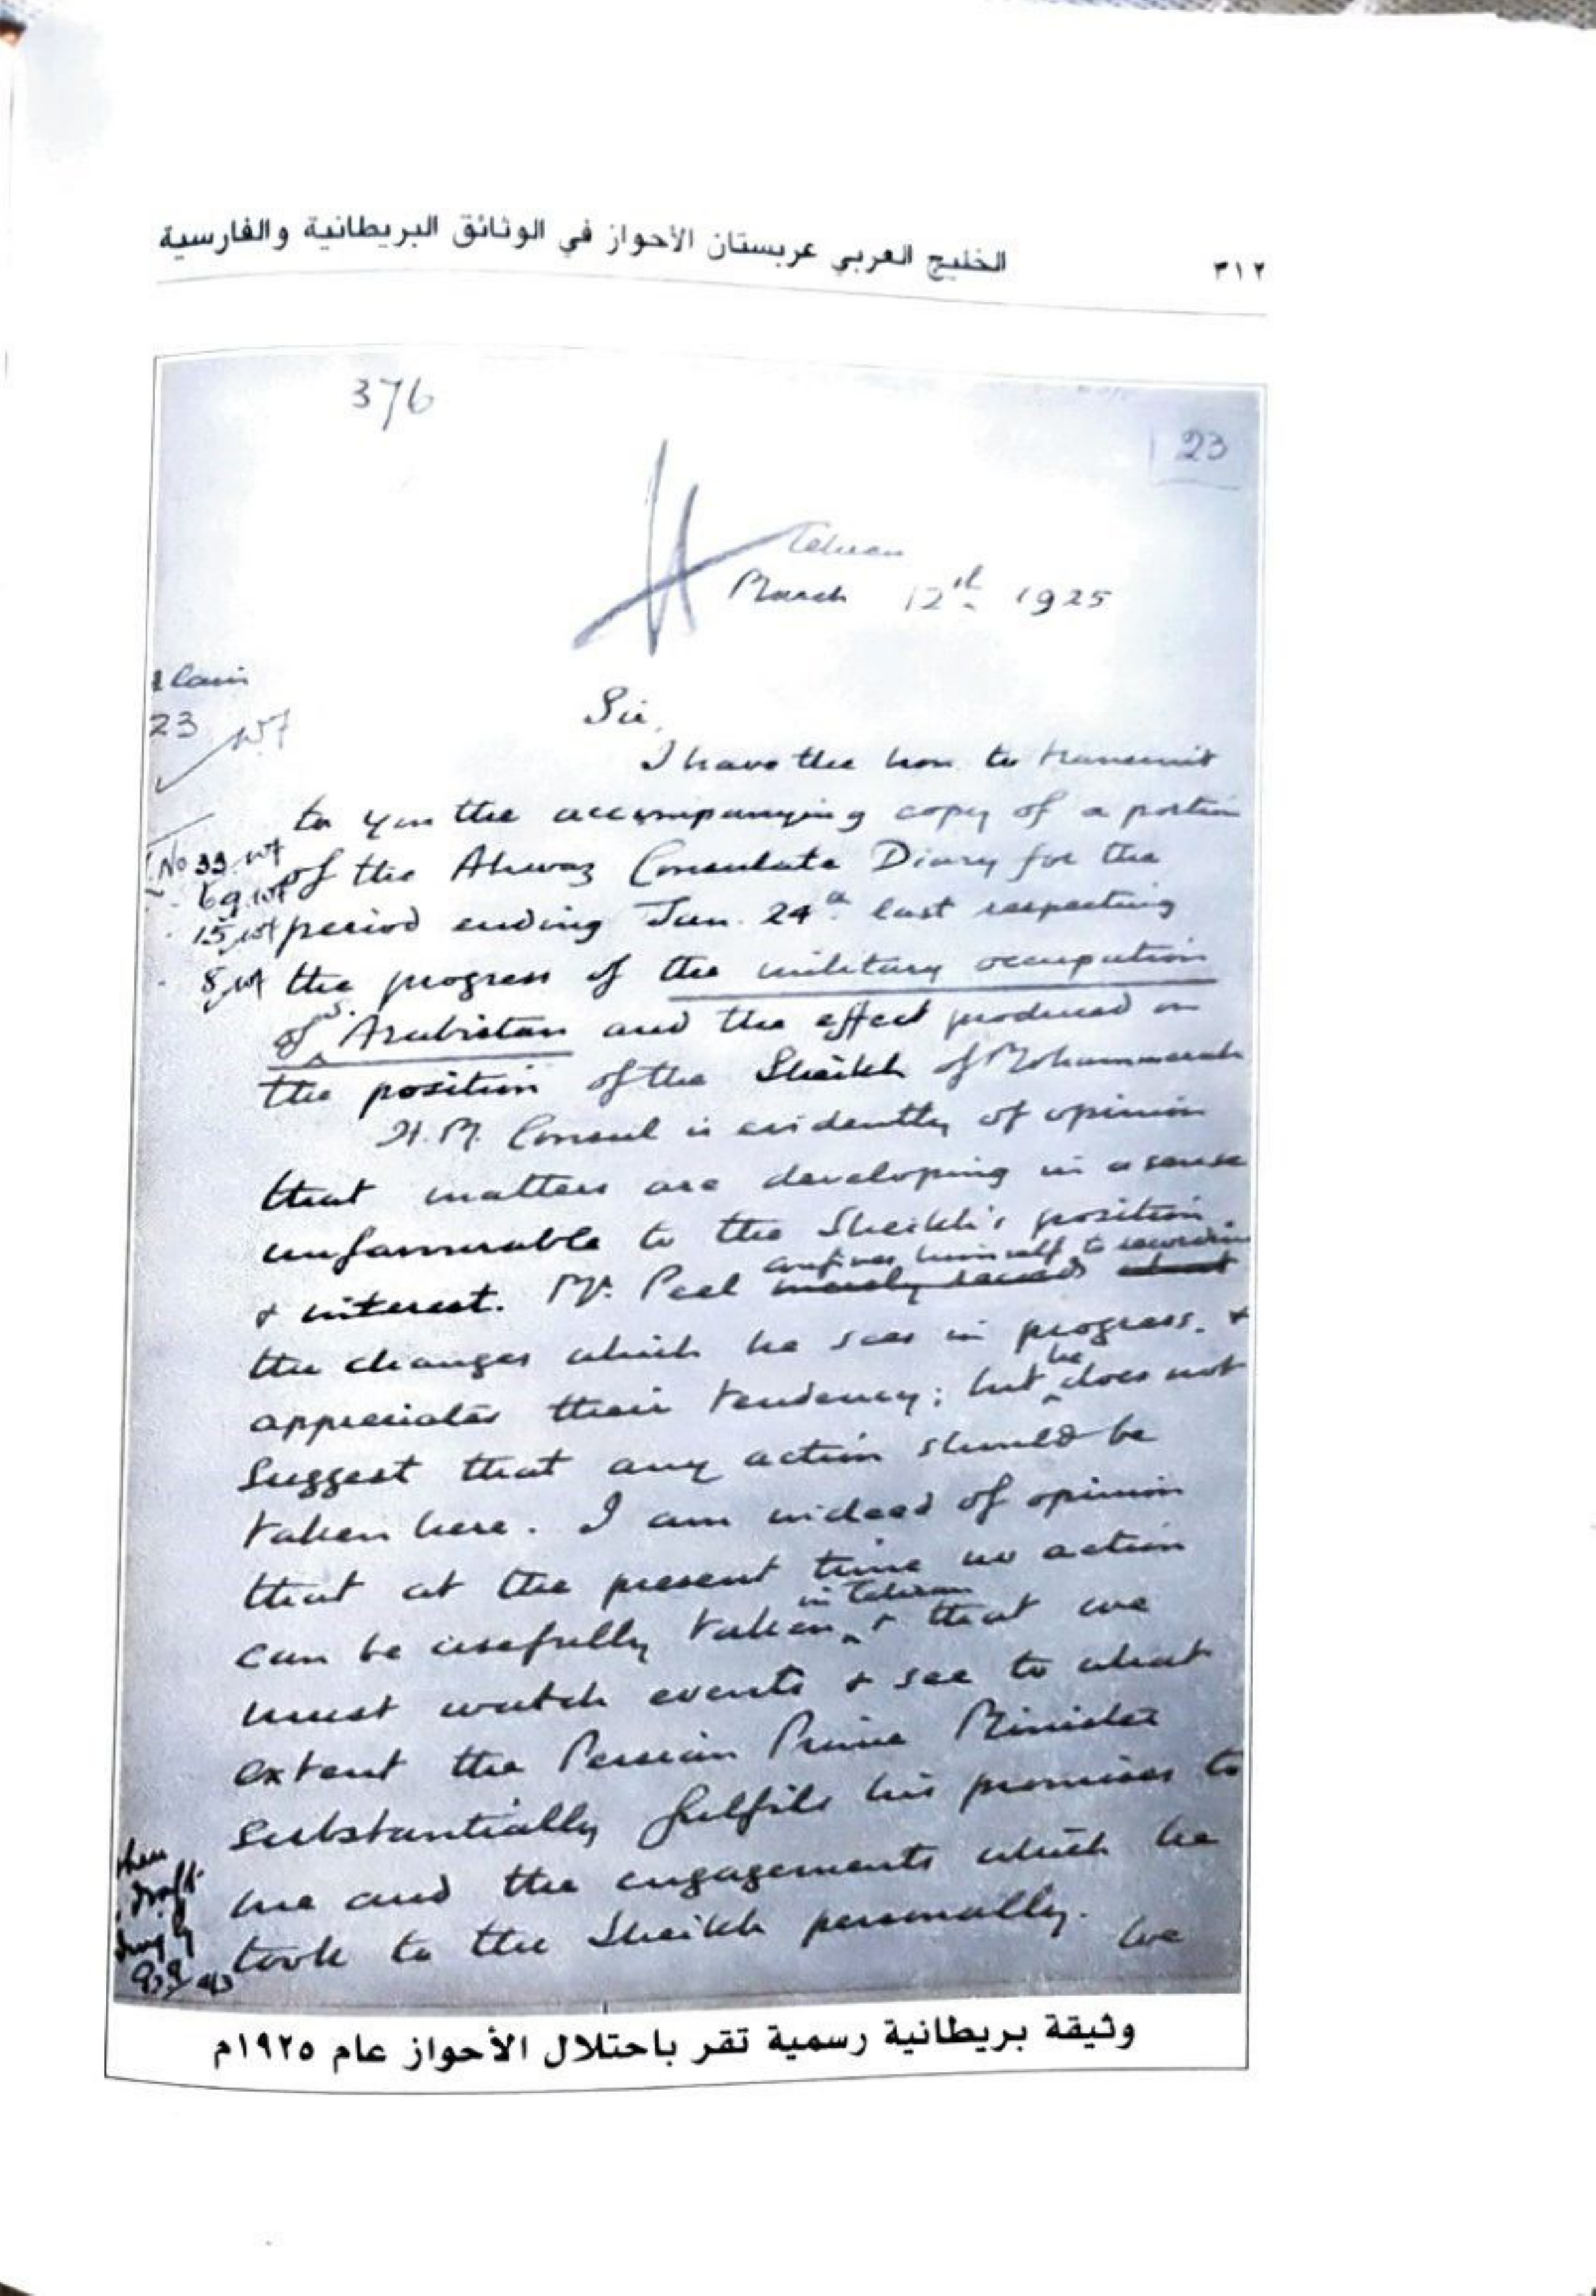 ٣١٢
الخليج العربي عربستان الأحواز في الوثائق البريطانية والفارسية
376
23
Tehran
March 12th 1925
23
Sir,
I have the hon. to transmit
to you the accompanying copy of a portion
No 33
of the Ahwaz Consulate Diary for the
69
period ending Jan. 24th last respecting
15
the progress of the military occupation
8
of Arabistan and the effect produced on
the position of the Sheikh of Mohammerah
H.M. Consul is evidently of opinion
that matters are developing in a sense
unfavourable to the Sheikh's position
confines himself to recording
& interest. Mr. Peel merely records
the changes which he sees in progress. &
he
appreciates their tendency; but does not
suggest that any action should be
taken here. I am indeed of opinion
that at the present time no action
in Tehran
can be usefully taken & that we
must watch events & see to what
extent the Persian Prime Minister
substantially fulfils his promises to
me and the engagements which he
took to the Sheikh personally. We
draft
وثيقة بريطانية رسمية تقر باحتلال الأحواز عام ١٩٢٥م